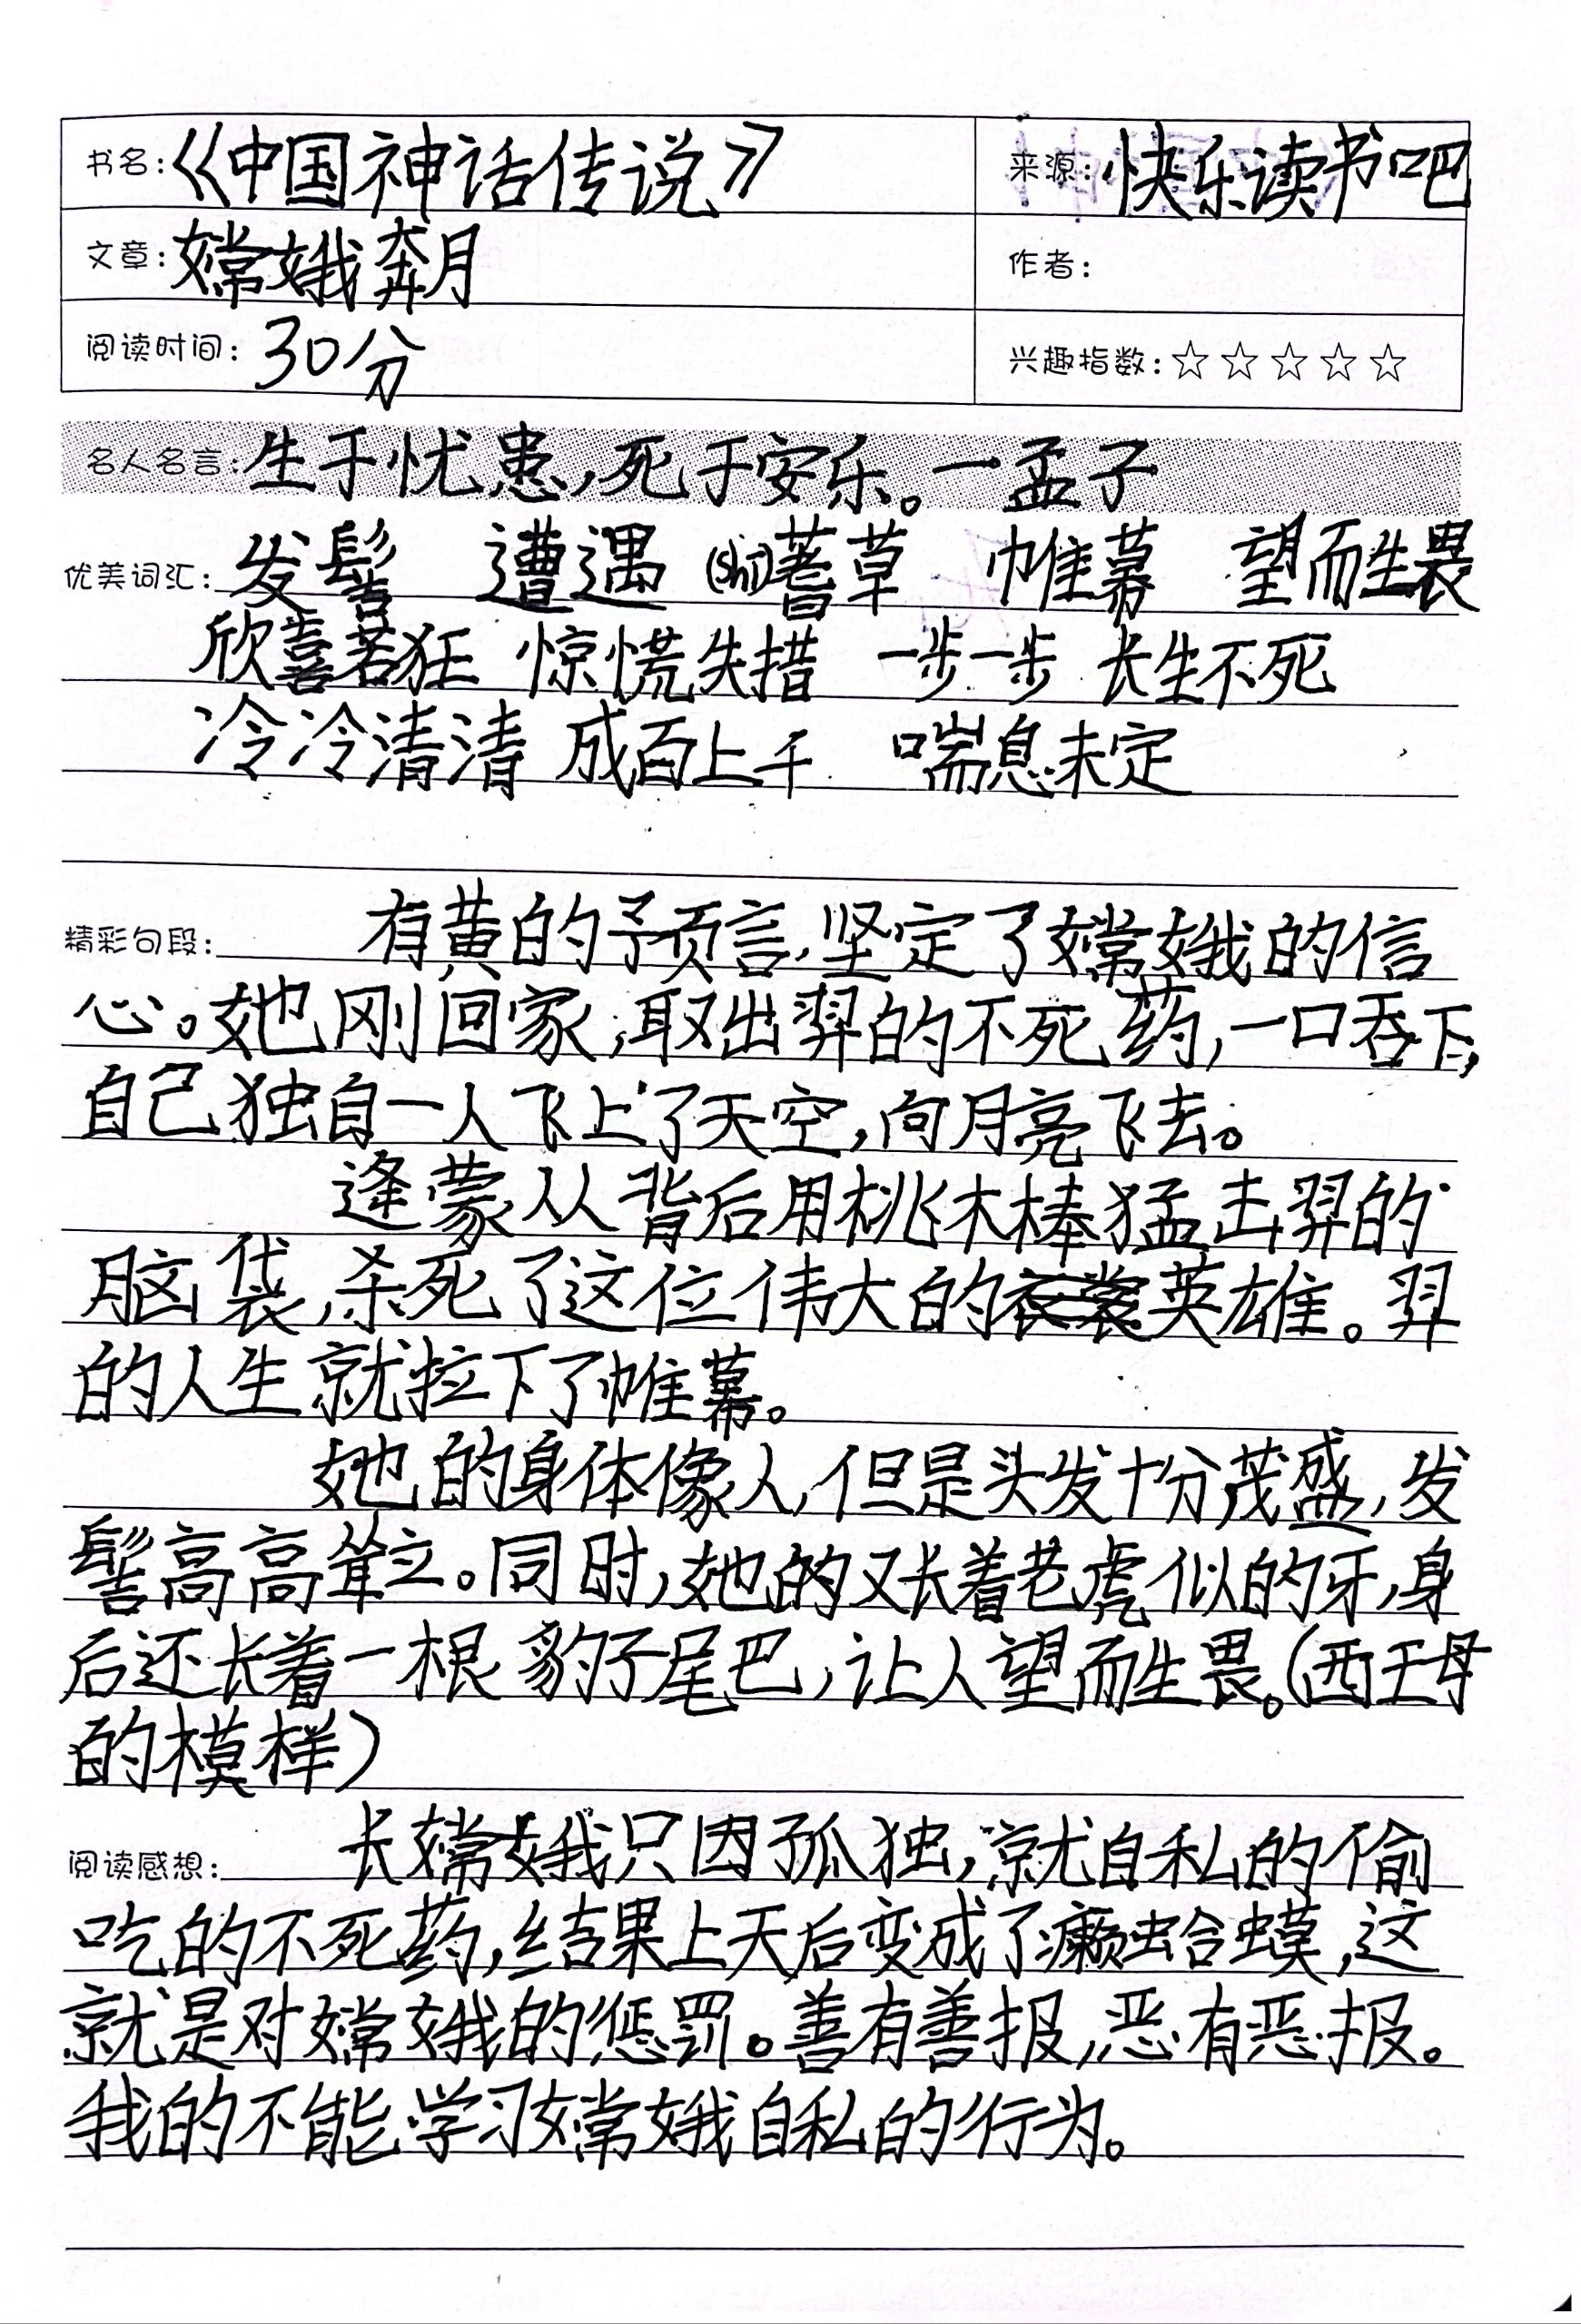 书名：《中国神话传说》 来源：快乐读书吧
文章：嫦娥奔月 作者：
阅读时间：30分 兴趣指数：☆☆☆☆☆
名人名言：生于忧患，死于安乐。一孟子
优美词汇：发髻 遭遇 (shī)蓍草 帷幕 望而生畏
欣喜若狂 惊慌失措 一步一步 长生不死
冷冷清清 成百上千 喘息未定
精彩句段：有黄的予预言，坚定了嫦娥的信
心。她刚回家，取出羿的不死药，一口吞下，
自己独自一人飞上了天空，向月亮飞去。
逢蒙从背后用桃木棒猛击羿的
脑袋，杀死了这位伟大的英雄。羿
的人生就拉下了帷幕。
她的身体像人，但是头发十分茂盛，发
髻高高耸立。同时，她的又长着老虎似的牙，身
后还长着一根豹子尾巴，让人望而生畏。（西王母
的模样）
阅读感想：长嫦娥只因孤独，就自私的偷
吃的不死药，结果上天后变成了癞蛤蟆，这
就是对嫦娥的惩罚。善有善报，恶有恶报。
我的不能学习嫦娥自私的行为。